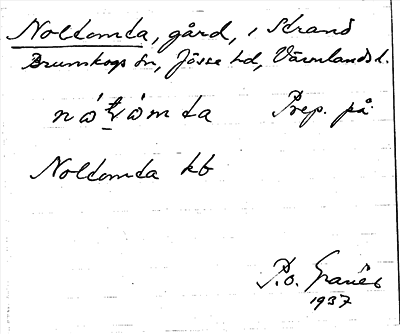 Noltomta, gård, i Strand
Brunskogs sn, Jösse hd, Värmlands l.
Prep. på
Noltomta kb
P.o. Granér
1937